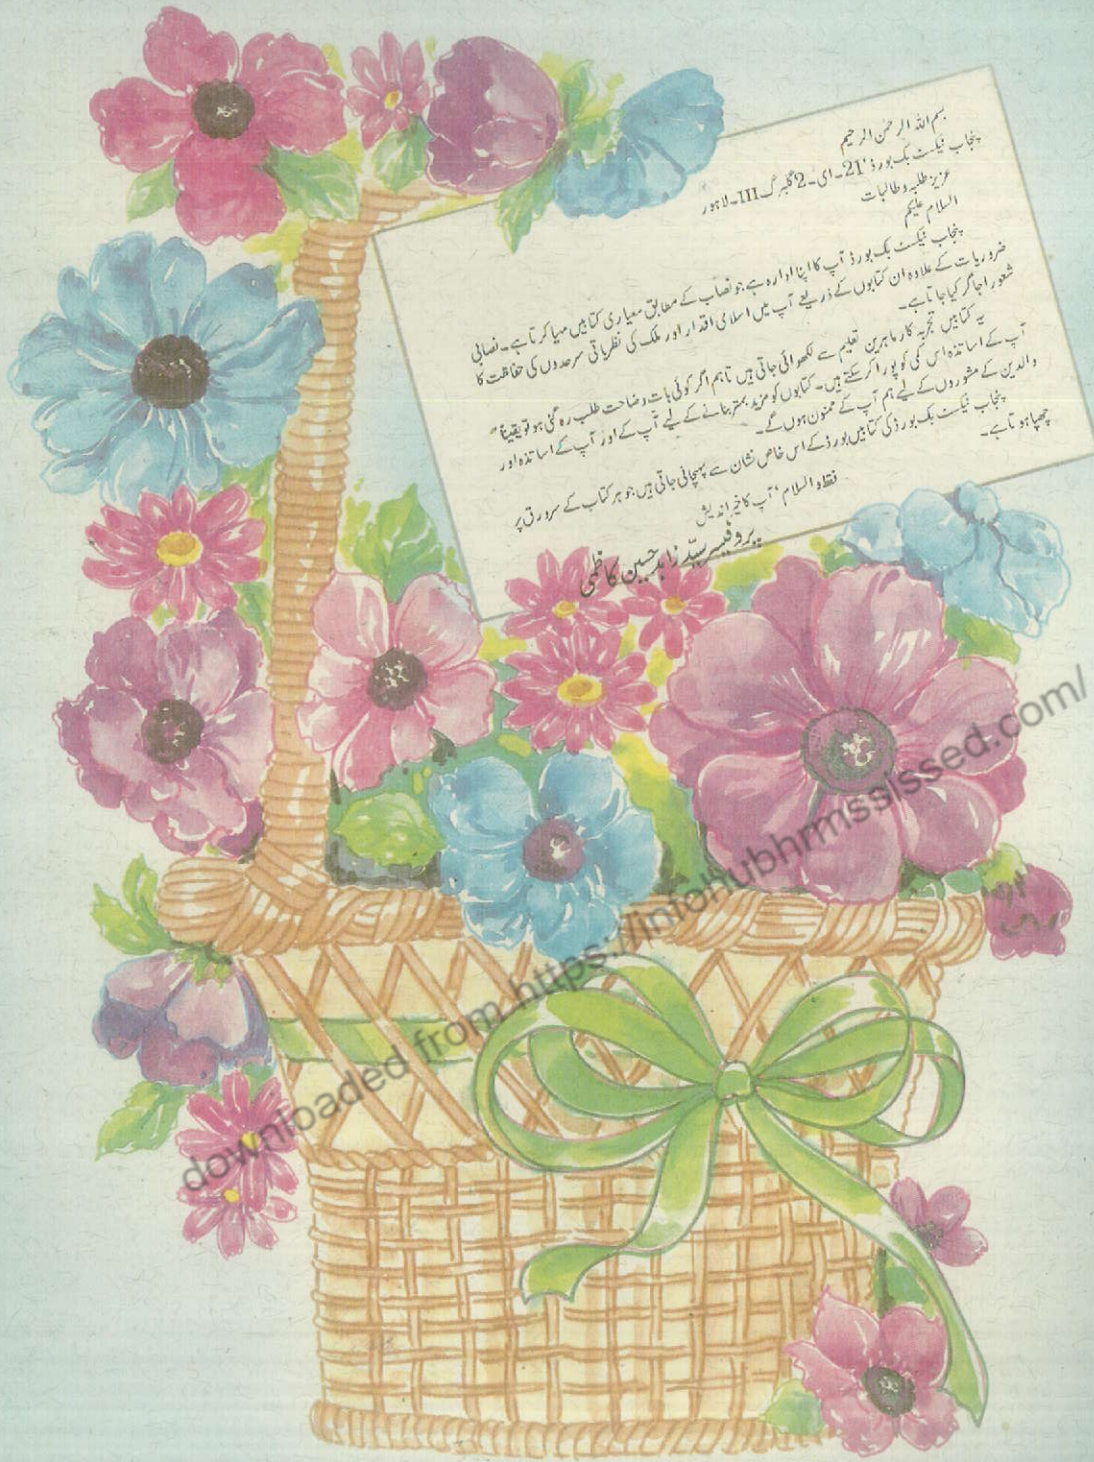 بسم اللہ الرحمٰن الرحیم
پنجاب ٹیکسٹ بک بورڈ، 21-ای-2 گلبرگ III-لاہور
عزیز طلبہ و طالبات
السلام علیکم
پنجاب ٹیکسٹ بک بورڈ آپ کا اپنا ادارہ ہے جو نصاب کے مطابق معیاری کتابیں مہیا کرتا ہے۔ نصابی
ضروریات کے علاوہ ان کتابوں کے ذریعے آپ میں اسلامی اقدار اور ملک کی نظریاتی سرحدوں کی حفاظت کا
شعور اجاگر کیا جاتا ہے۔
یہ کتابیں تجربہ کار ماہرین تعلیم سے لکھوائی جاتی ہیں تاہم اگر کوئی بات وضاحت طلب رہ گئی ہو تو یقیناً
آپ کے اساتذہ اس کمی کو پورا کر سکتے ہیں۔ کتابوں کو مزید بہتر بنانے کے لیے آپ کے اور آپ کے اساتذہ اور
والدین کے مشوروں کے لیے ہم آپ کے ممنون ہوں گے۔
پنجاب ٹیکسٹ بک بورڈ کی کتابیں بورڈ کے اس خاص نشان سے پہچانی جاتی ہیں جو ہر کتاب کے سرورق پر
چھپا ہوتا ہے۔
فقط والسلام، آپ کا خیر اندیش
پروفیسر سید زاہد حسین کاظمی
downloaded from https://infohubhrmssissed.com/